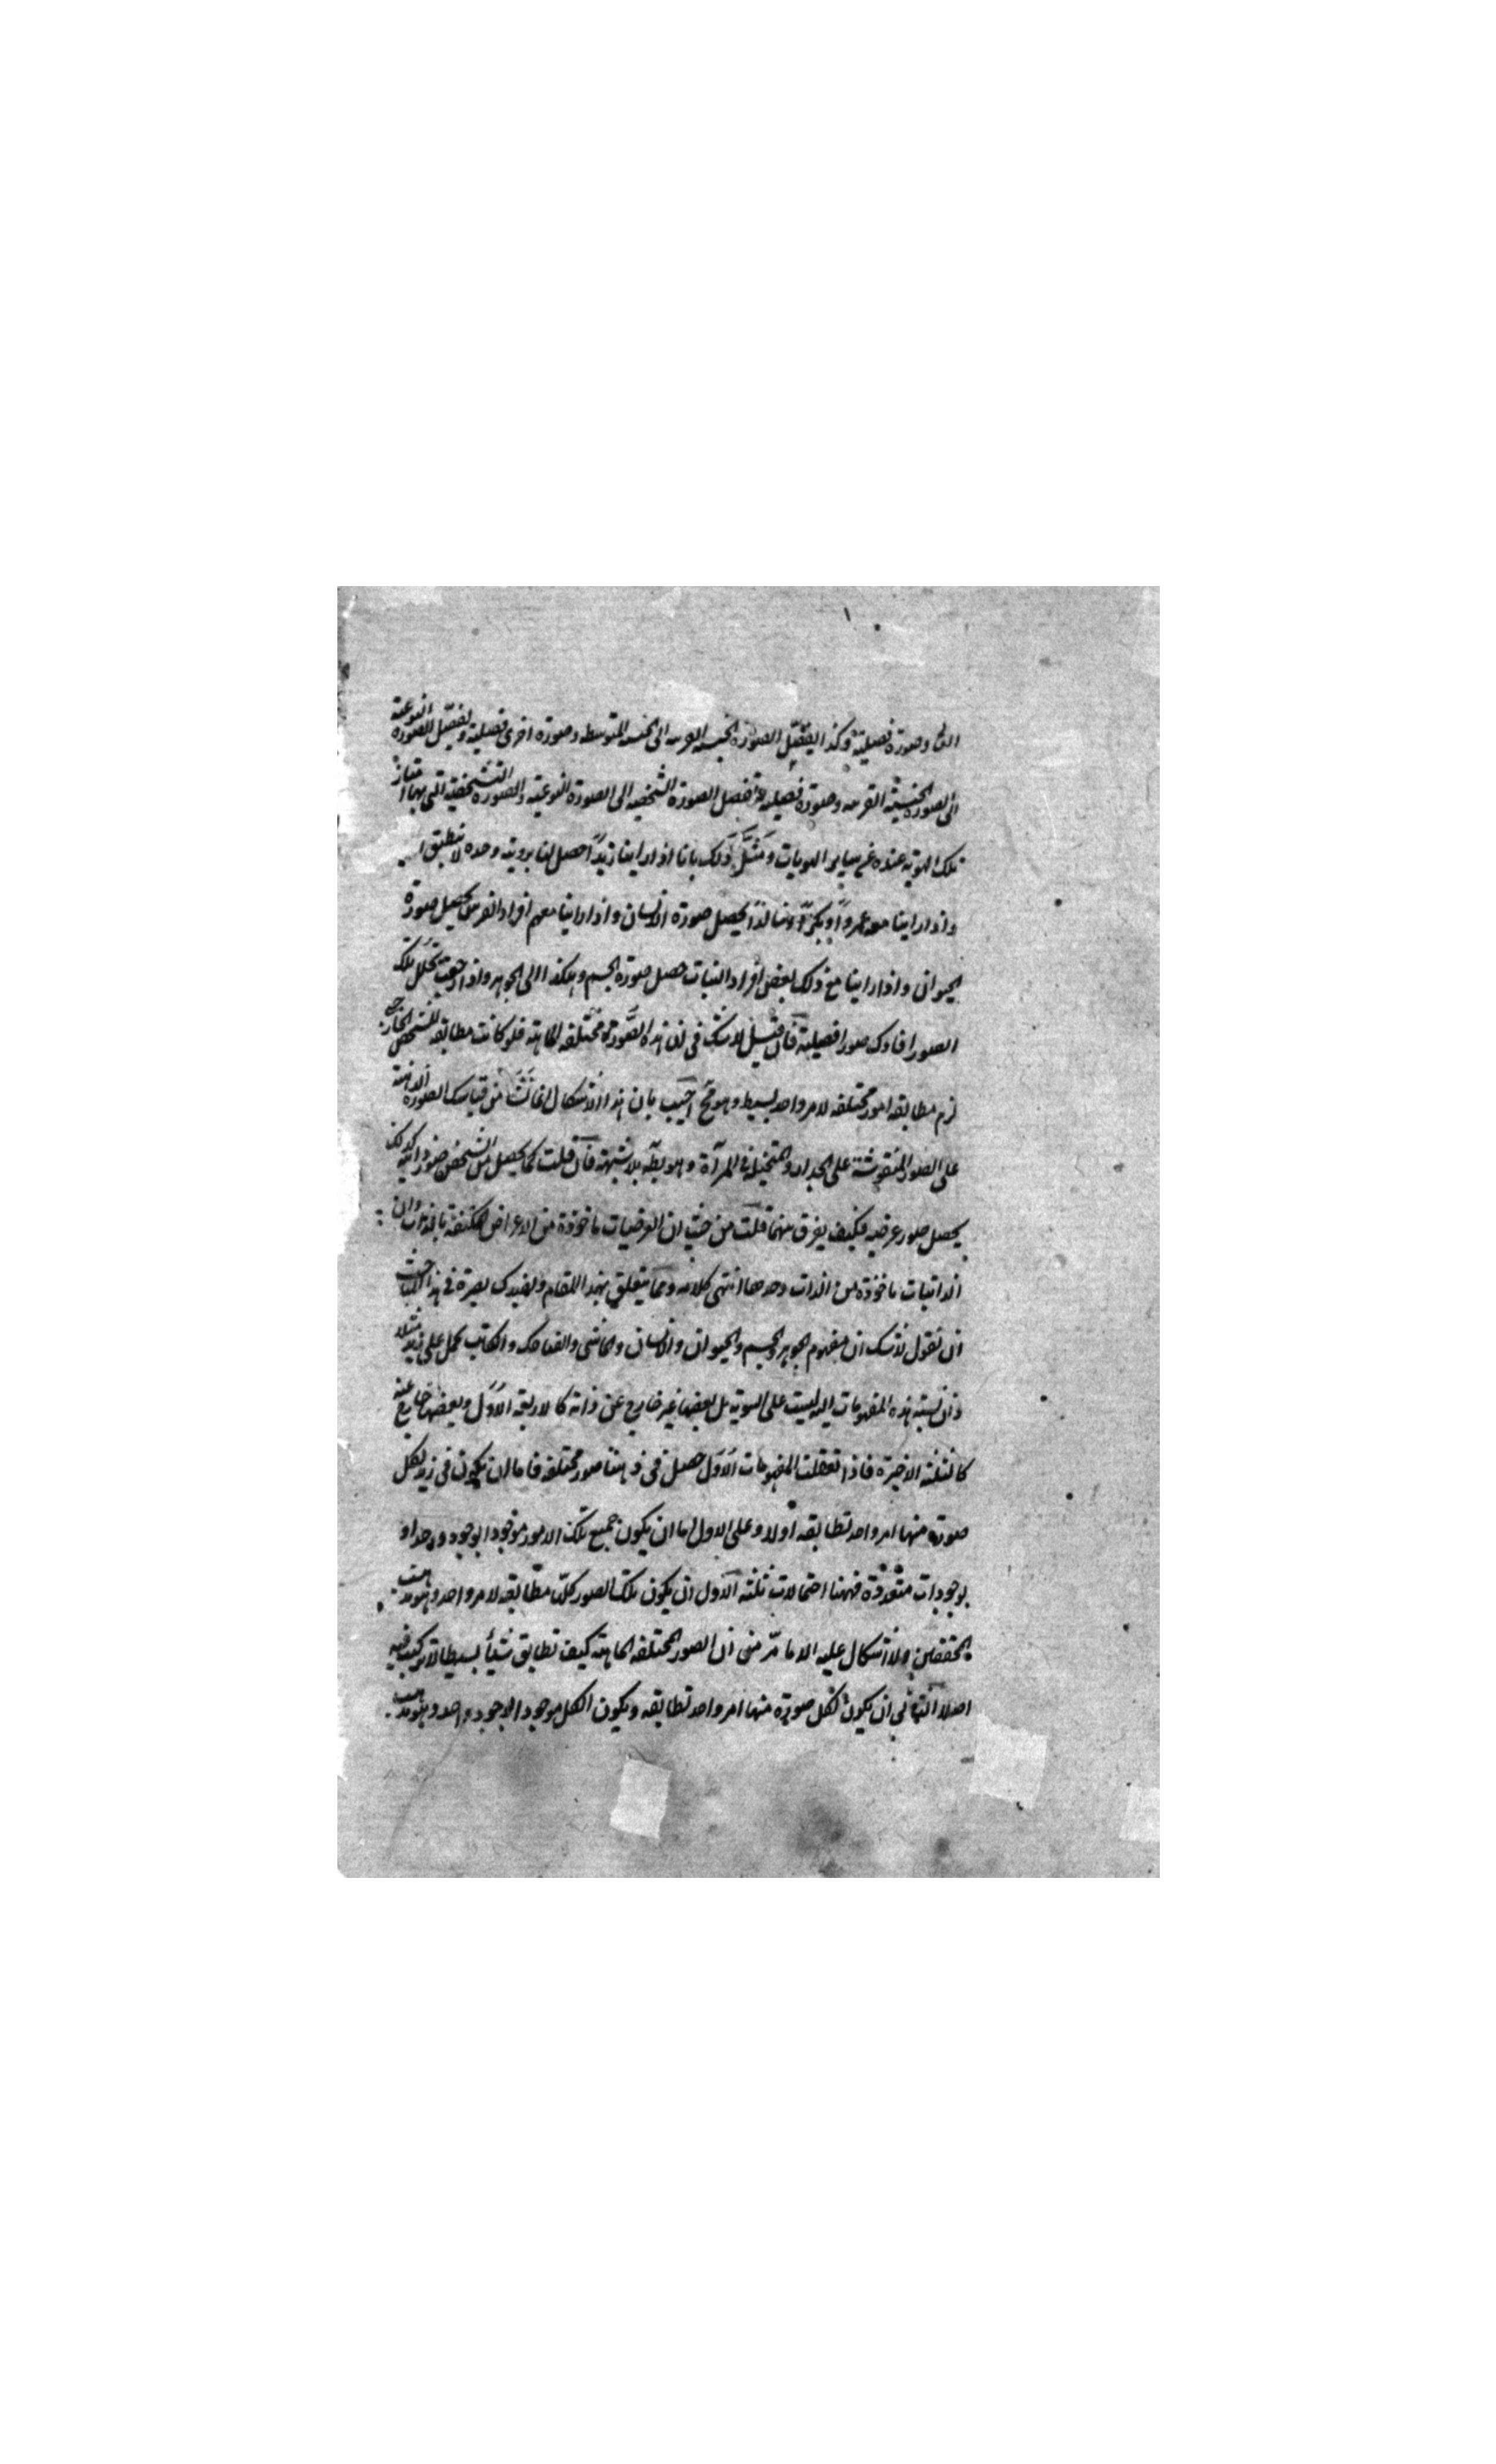 العا وصورة فصيلية وكذا يفصّل الصورة الجنسية القريبة الى الجنسية المتوسطة وصورة اخرى فصيلية وتفصيل الصورة النوعية
الى الصورة الجنسية القريبة وصورة فصيلية وتفصيل الصورة الشخصية الى الصورة النوعية والصورة التشخصية التى بها امتاز
تلك الهوية عنده عن ساير الهويات ومَثَّلَ ذلك بانا اذا راينا زيدًا حصل لنا برويته وحده لا تنطبق
واذا راينا معه عمروًا وبكرًا وخالدًا يحصل صورة الانسان واذا راينا معهم افراد الفرس يحصل صورة
الحيوانى واذا راينا مع ذلك بعض افراد النبات حصل صورة الجسم وهكذا الى الجوهر واذا رجعت تحلل تلك
الصور افادك صورا فصيلية فان قيل لا شك فى ان هذه الصورة مختلفة الماهية فلو كانت مطابقة للشخص الخارجى
لزم مطابقة امور مختلفة لامر واحد بسيط وهو مح اجيب بان هذا الاشكال انما نشا من قياسك الصورة الذهنية
على الصور المنقوشة على الجدار والمتخيلة فى المرآة وهو بط بلا شبهة فان قلت كما يحصل من الشخص صور ذاتية كذلك
يحصل صور عرضية فكيف يفرق بينهما قلت من حيث ان العرضيات ماخوذة من الاعراض المكتنفة بالذات وان
الذاتيات ماخوذة من الذات وحدها انتهى كلامه ومما يتعلق بهذا المقام ويفيدك بصيرة فى هذا الباب
ان نقول لا شك ان مفهوم الجوهر والجسم والحيوان والانسان والماشى والضاحك والكاتب يحمل على زيد مثلا
وان نسبة هذه المفهومات اليه ليست على السوية بل بعضها غير خارج عن ذاته كالاربعة الاول وبعضها خارج عنه
كالثلثة الاخيرة فاذا تعقلت المفهومات الاول حصل فى ذهننا صور مختلفة فاما ان يكون فى زيد لكل
صورة منها امر واحد تطابقه اولا وعلى الاول اما ان يكون جميع تلك الامور موجودا بوجود واحد او
بوجودات متعددة فههنا احتمالات ثلثة الاول ان يكون تلك الصور كلّا مطابقة لامر واحد وهو مذهب
المحققين ولا اشكال عليه الا ما مرّ من ان الصور المختلفة الماهية كيف تطابق شيأ بسيطا لا تركيب فيه
اصلا الثانى ان يكون لكل صورة منها امر واحد تطابقه ويكون الكل موجودا بوجود واحد وهو مذهب